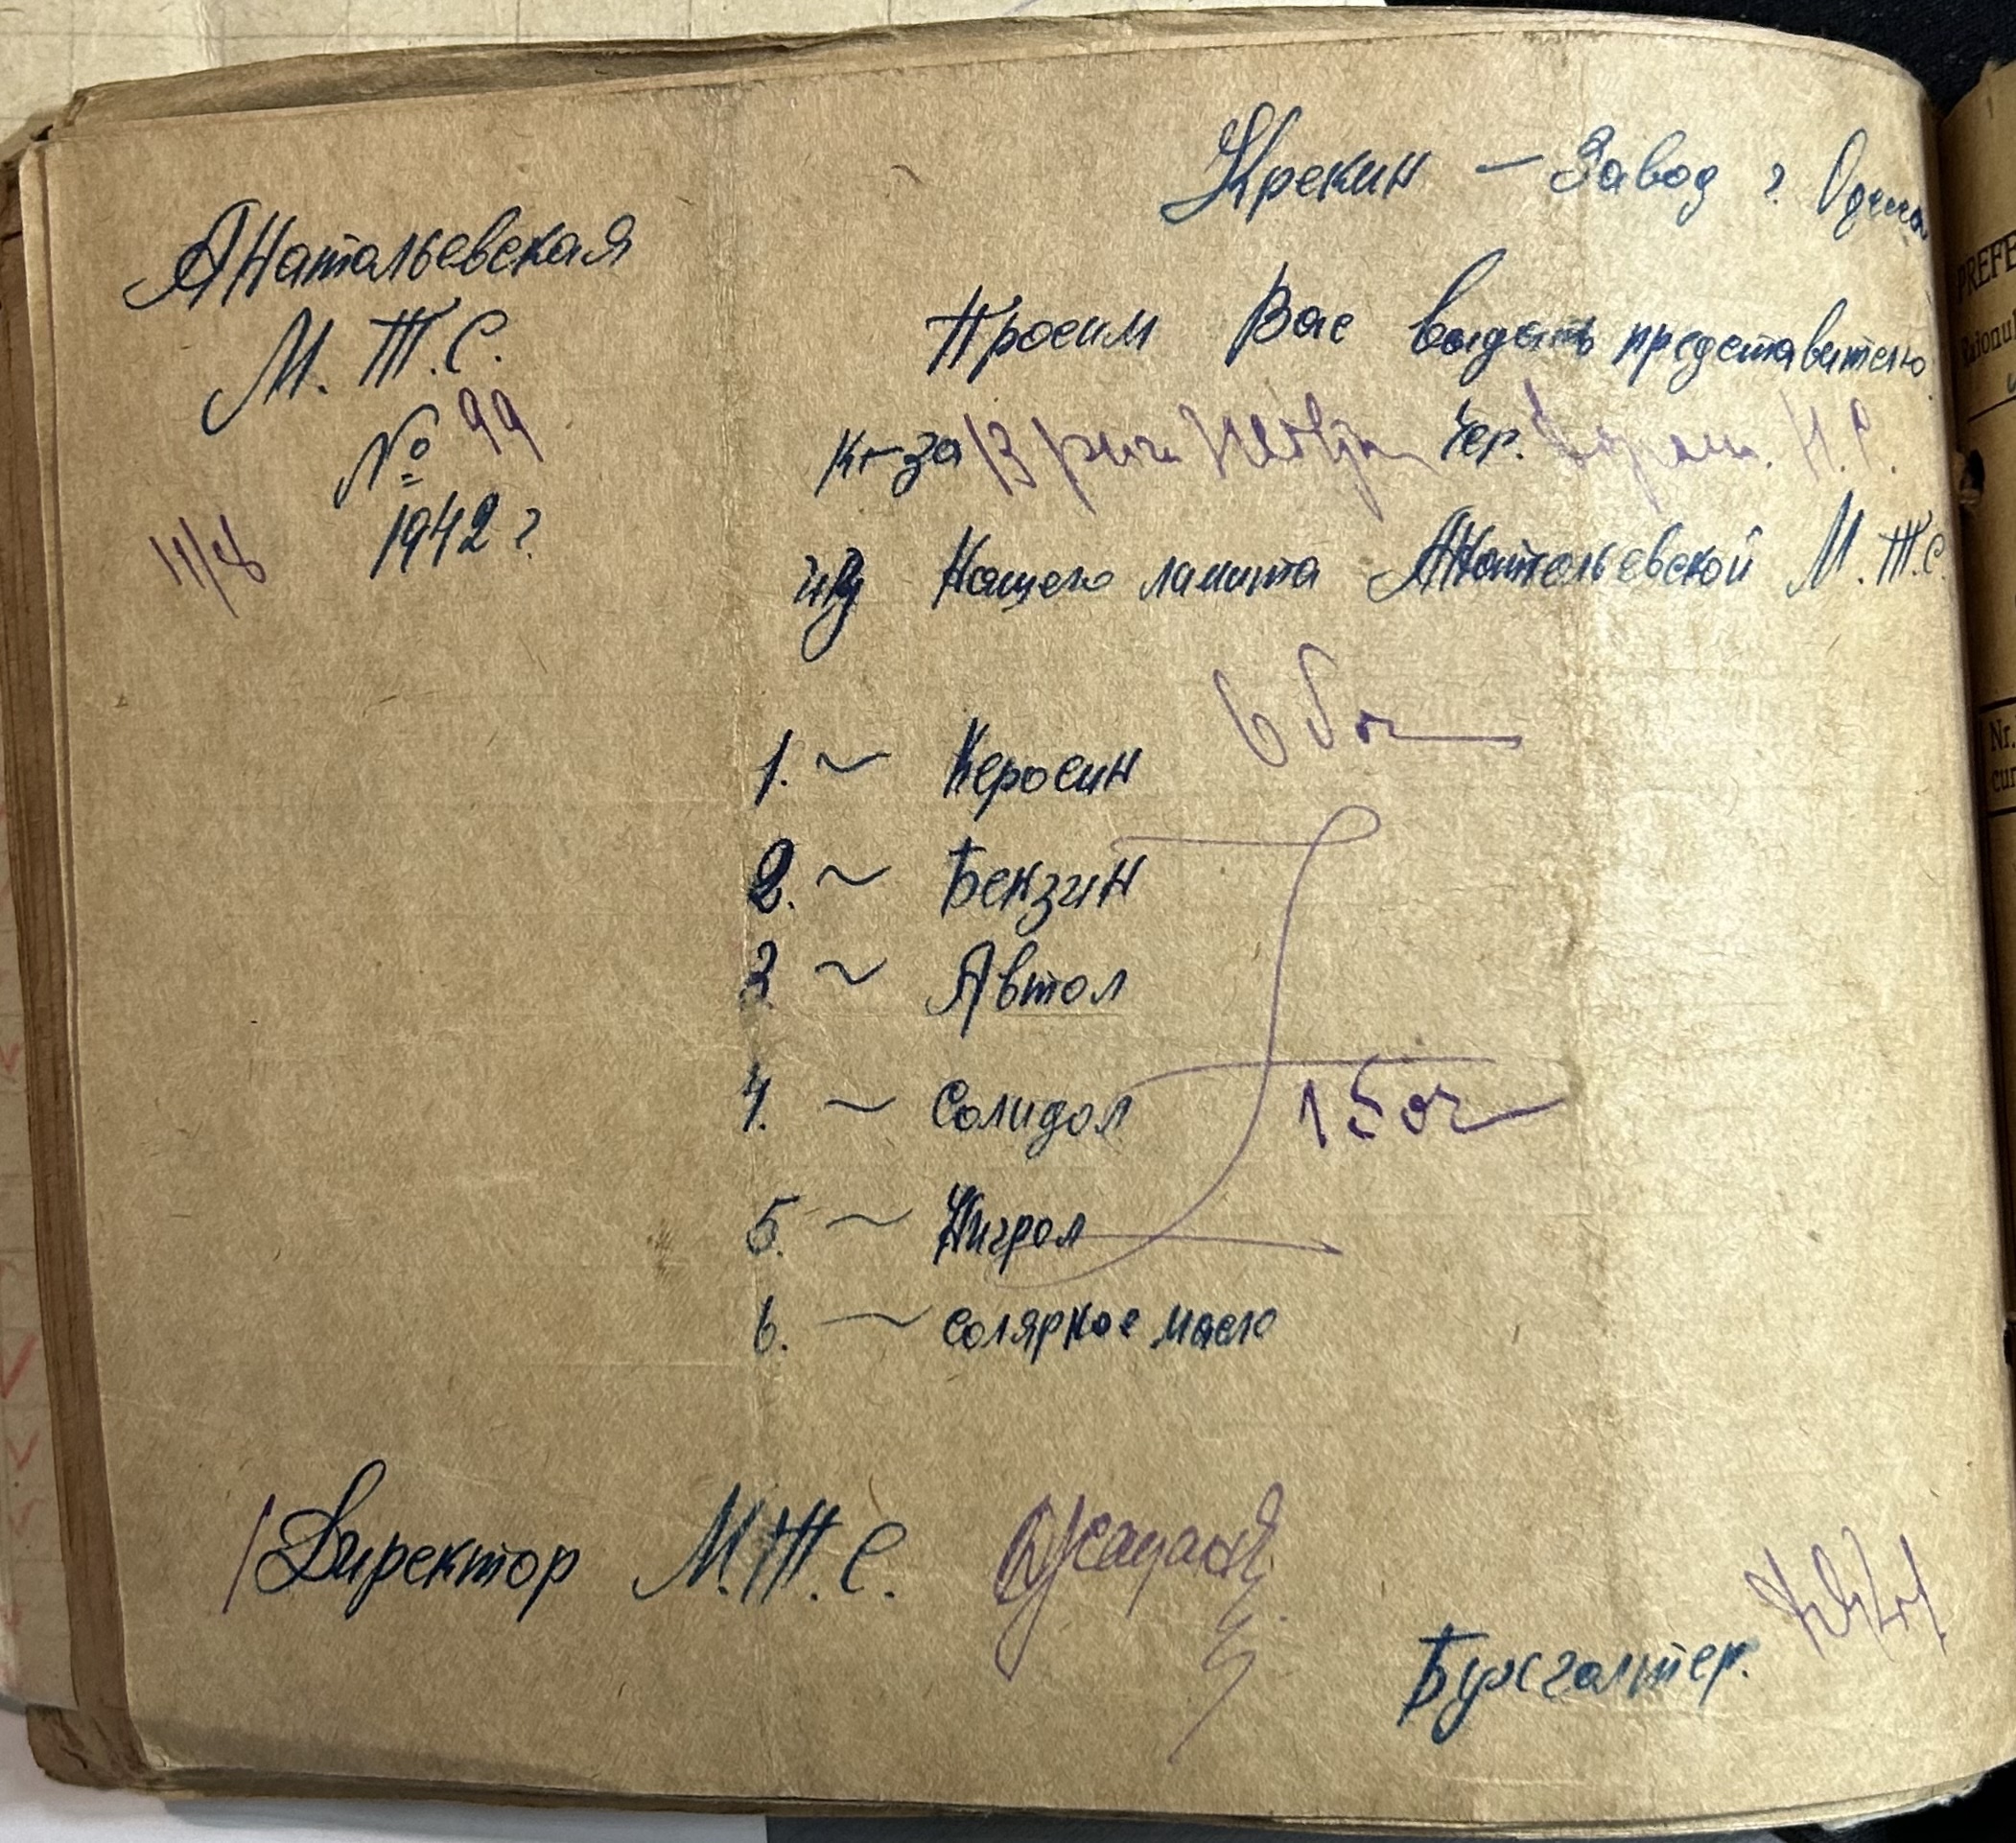 Крекин — Завод г. Одесса
Анатольевская
М.Т.С.
№ 99
11/8 1942 г.
Просим Вас выдать представителю
к-за Чер. Н. С.
из Нашего лимита Анатольевской М.Т.С.
1. ~ Керосин 6 боч
2. ~ Бензин
3. ~ Автол
4. ~ Солидол 1 боч
5. ~ Нигрол
6. ~ Солярное масло
Директор М.Т.С.
Бухгалтер.
PREFE
Raionul
Nr.
cur